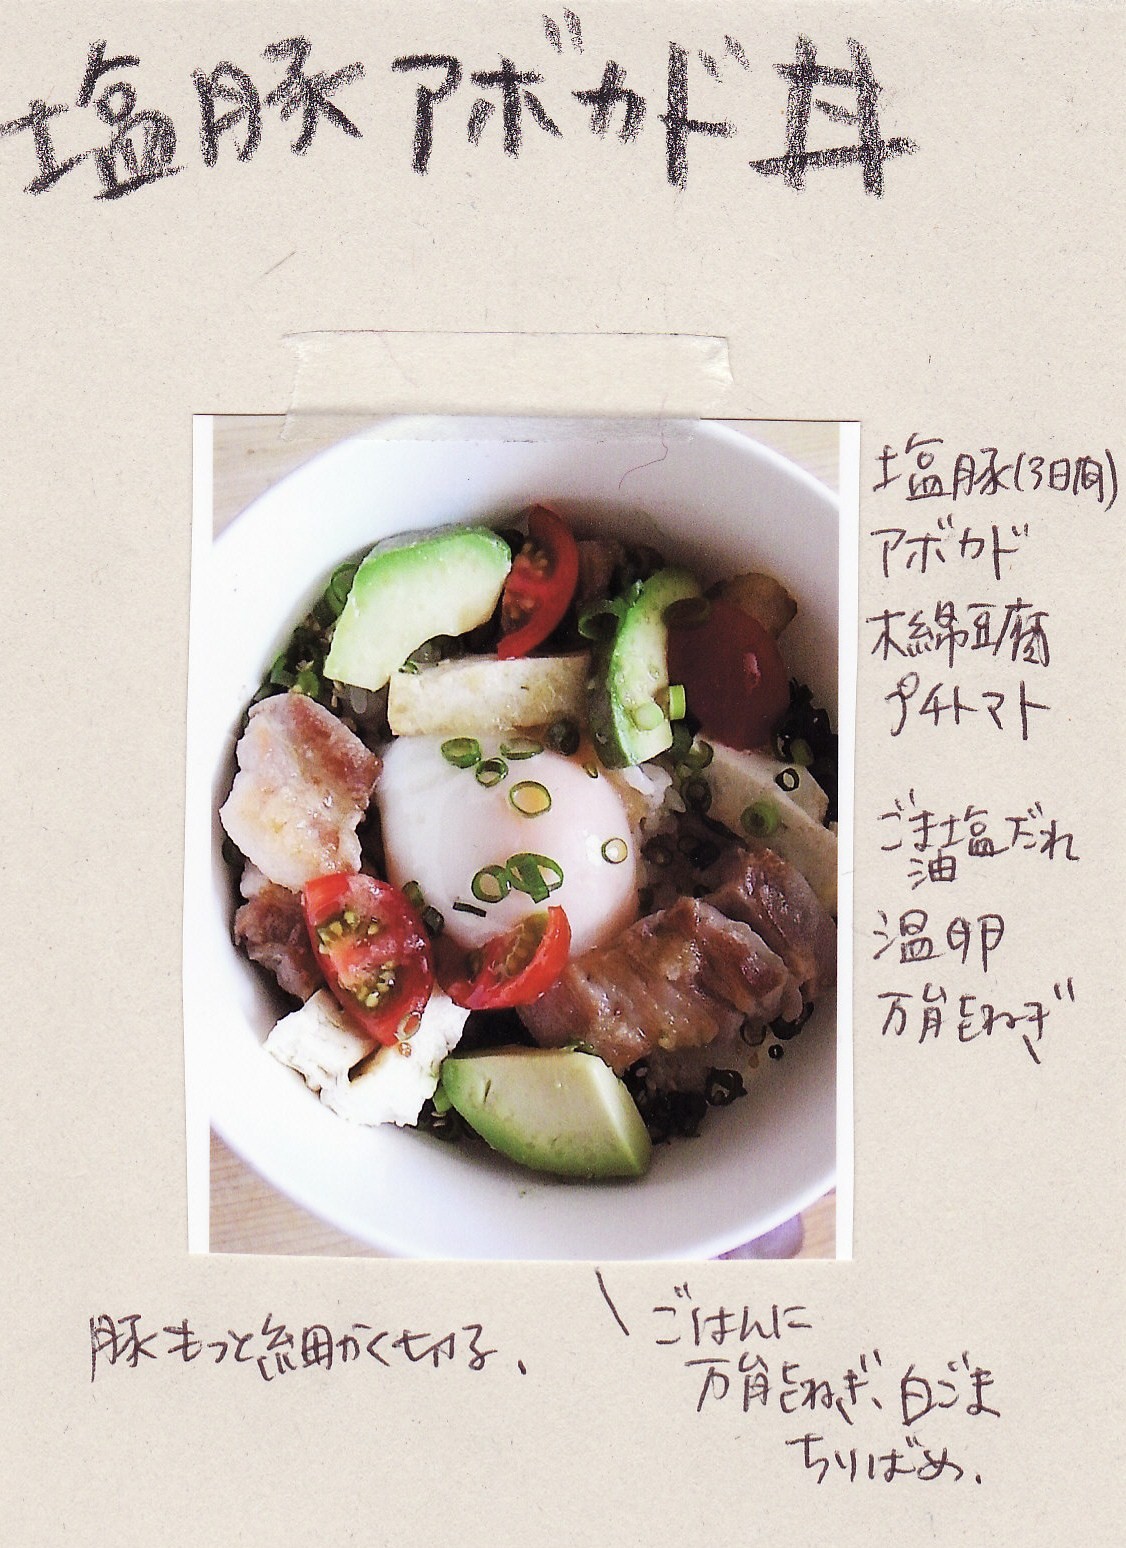 塩豚アボカド丼
塩豚(3日間)
アボカド
木綿豆腐
プチトマト
ごま塩だれ
油
温卵
万能ねぎ
豚もっと細かく切る、
ごはんに
万能ねぎ、白ごま
ちりばめ、